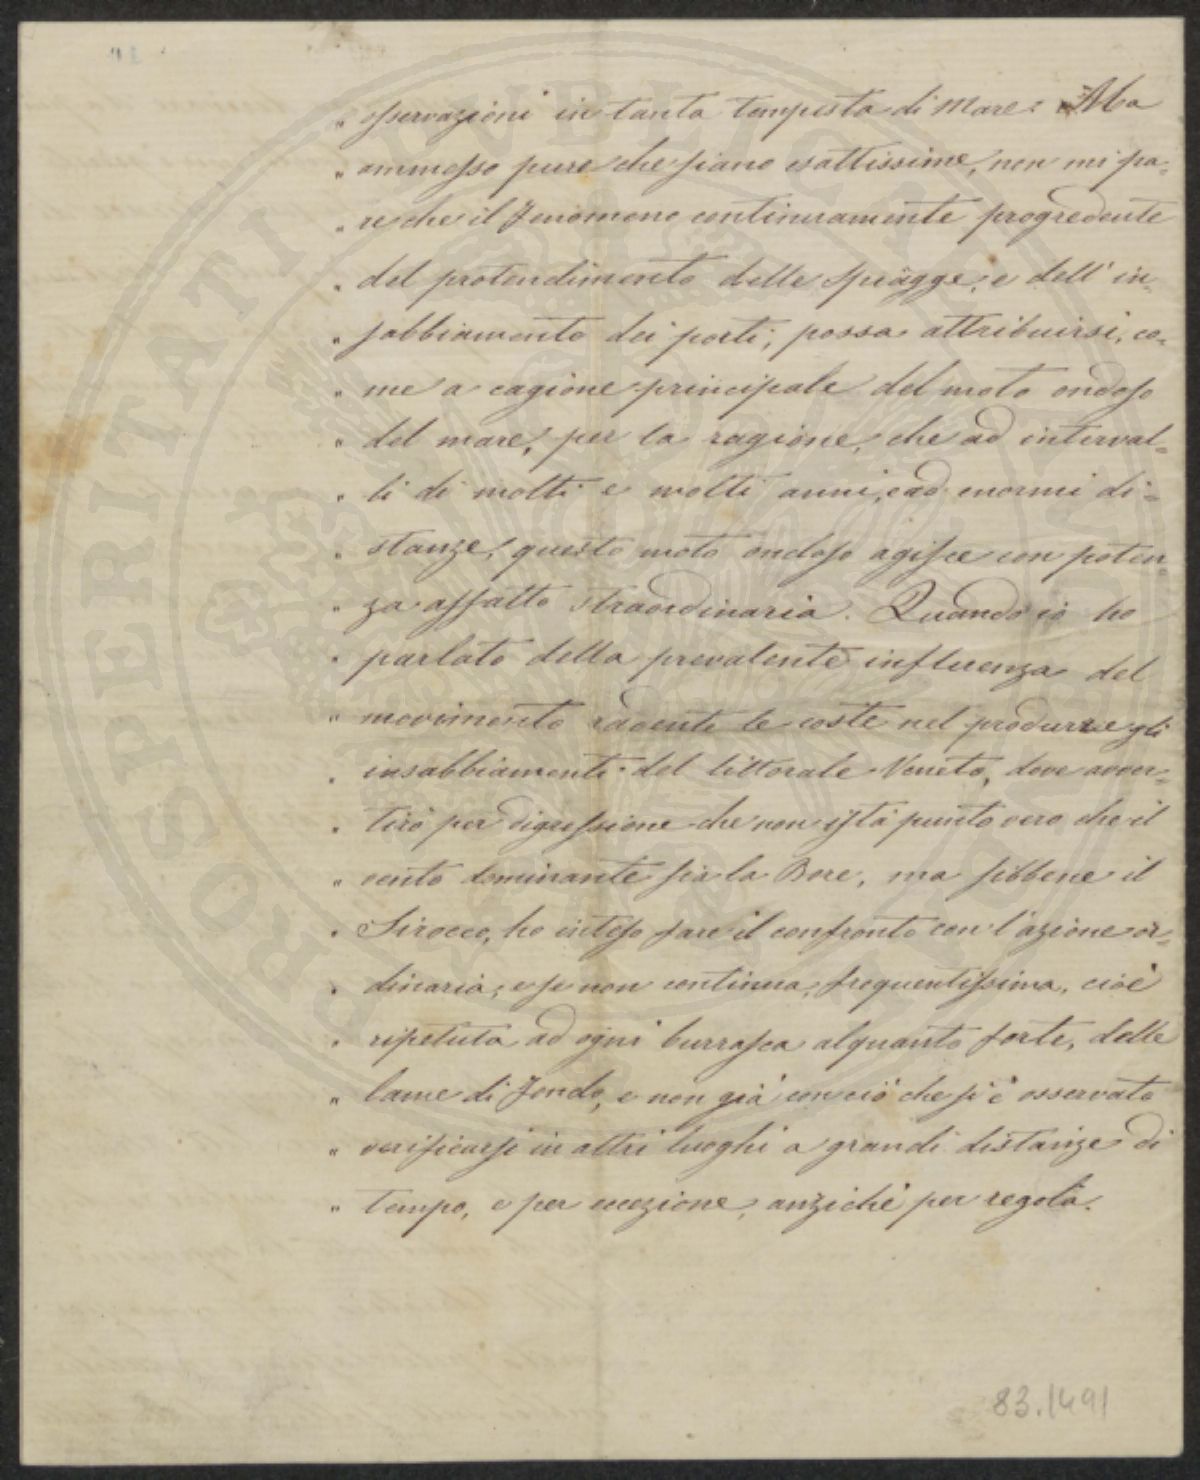 " osservazioni in tanta tempesta di mare. Ma
" ammesso pure che siano esattissime, non mi pa-
" re che il fenomeno continuamente progredente
" del protendimento delle spiagge, e dell' in-
" sabbiamento dei porti, possa attribuirsi, co-
" me a cagione principale del moto ondoso
" del mare, per la ragione, che ad interval-
" li di molti e molti anni, ead enormi di-
" stanze, questo moto ondoso agisce con poten-
" za affatto straordinaria. Quando io ho
" parlato della prevalente influenza del
" movimento radente le coste nel produrre gli
" insabbiamenti del littorale Veneto, dove avver-
" tirò per digressione che non istà punto vero che il
" vento dominante sia la Bora, ma sibbene il
" Sirocco, ho inteso fare il confronto con l'azione or-
" dinaria, e se non continua, frequentissima, cioè
" ripetuta ad ogni burrasca alquanto forte, delle
" lame di fondo, e non già con ciò che si è osservato
" verificarsi in altri luoghi a grandi distanze di
" tempo, e per eccezione, anzichè per regola.
83.1491
PROSPERITATI PUBLICAE